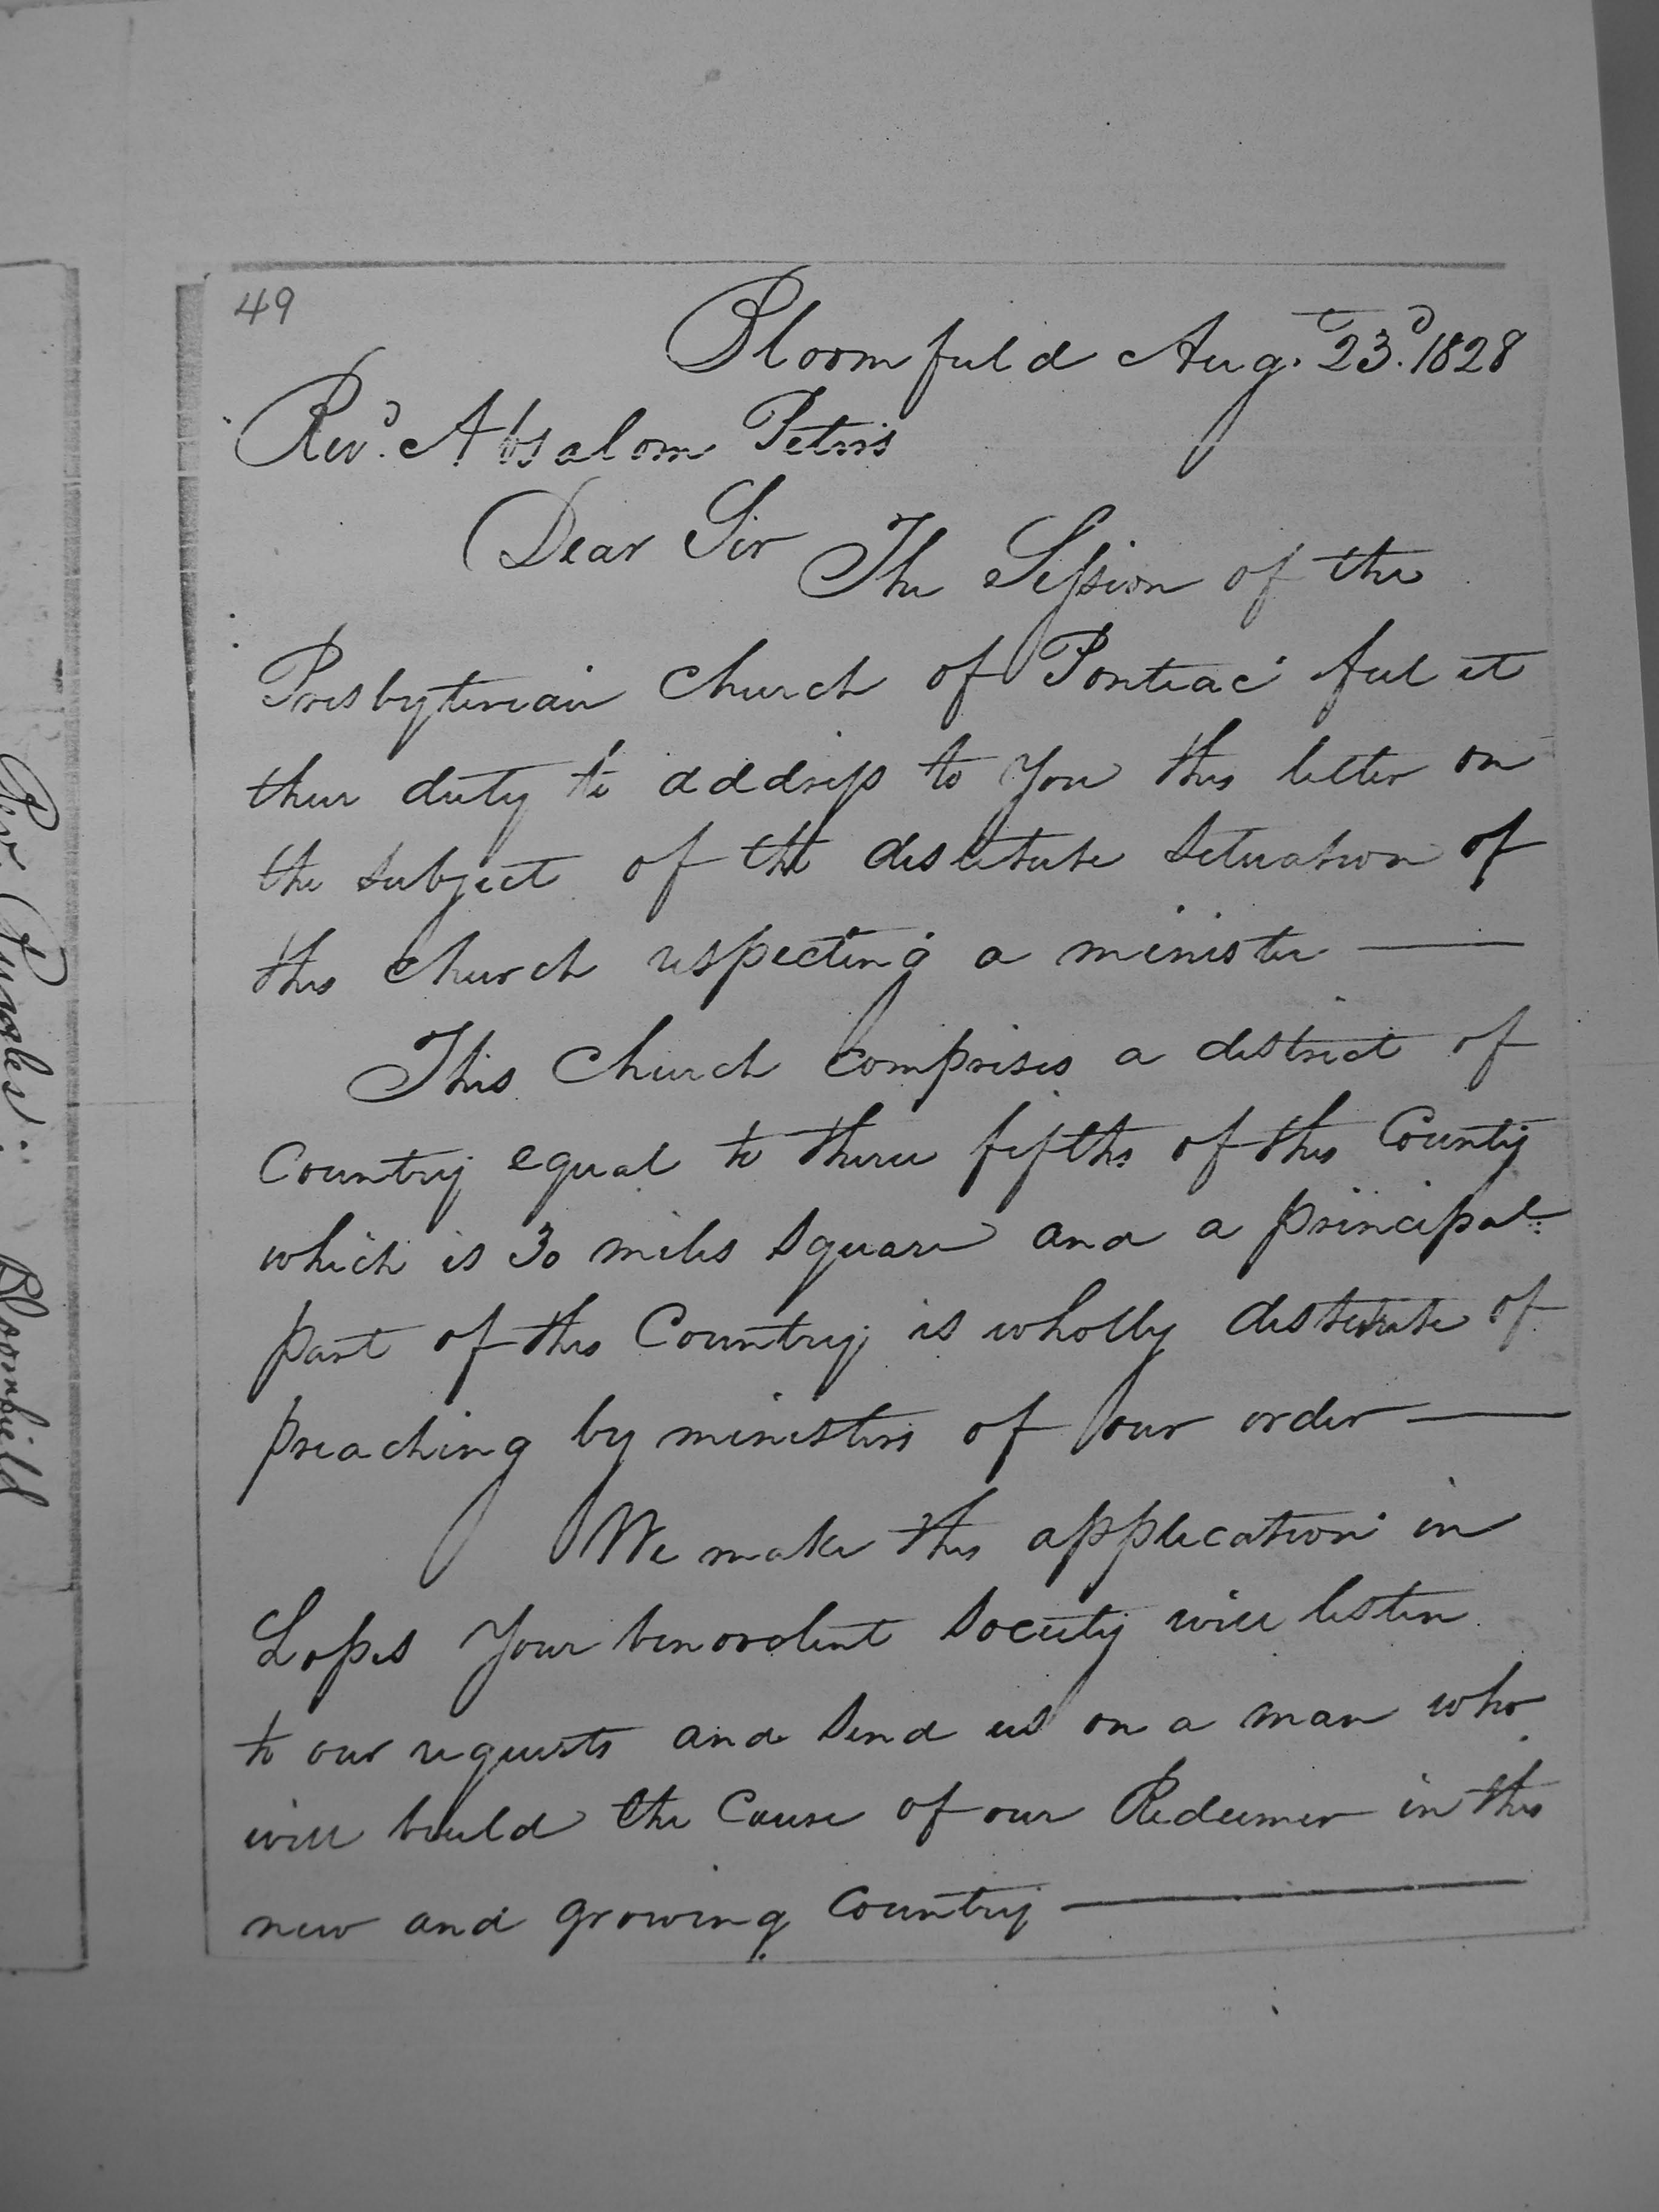 49
Bloomfield Augt. 23d. 1828
Revd. Absalom Peters
Dear Sir The Session of the
Presbyterian Church of Pontiac feel it
their duty to address to you this letter on
the subject of the destitute situation of
this Church respecting a minister —
This Church comprises a district of
Country equal to three fifths of this County
which is 30 miles square and a principal
part of this Country is wholly destitute of
preaching by ministers of our order —
We make this application in
hopes your benovolent society will listen
to our requests and send us on a man who
will build the cause of our Redeemer in this
new and growing country —
Rev. Ruggles:. Bloomfield